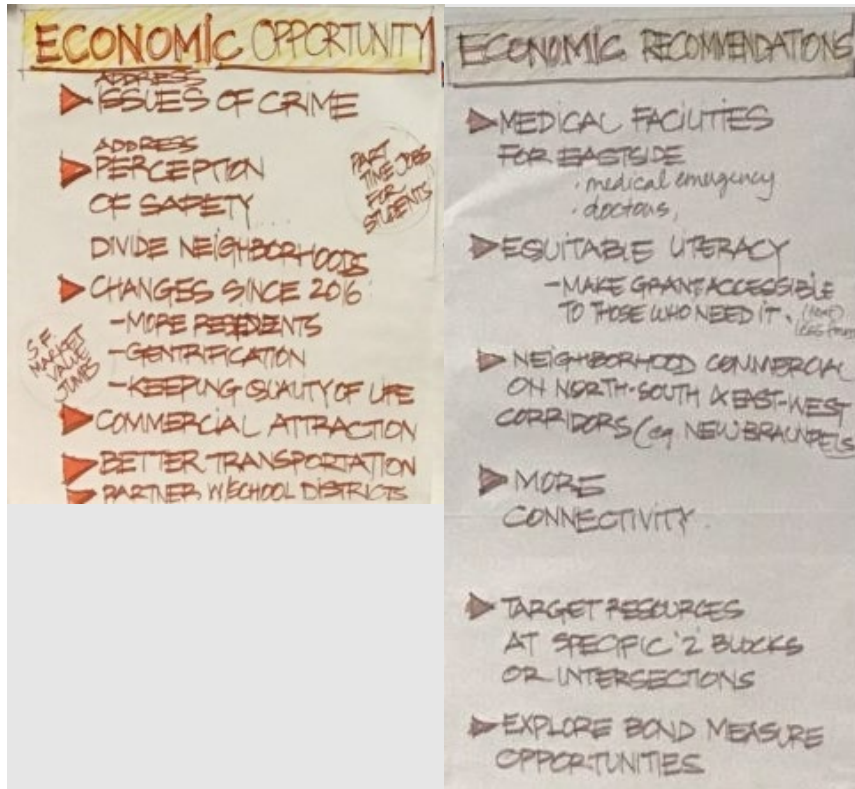 ECONOMIC OPPORTUNITY
ADDRESS
ISSUES OF CRIME
ADDRESS
PERCEPTION
OF SAFETY
DIVIDE NEIGHBORHOODS
PART
TIME JOBS
FOR
STUDENTS
CHANGES SINCE 2016
-MORE RESEDENTS
-GENTRIFICATION
-KEEPING QUALITY OF LIFE
S.F.
MARKET
VALUE
JUMPS
COMMERCIAL ATTRACTION
BETTER TRANSPORTATION
PARTNER W/SCHOOL DISTRICTS
ECONOMIC RECOMMENDATIONS
MEDICAL FACILITIES
FOR EASTSIDE
· medical emergency
· doctors,
EQUITABLE LITERACY
-MAKE GRANT ACCESSIBLE
TO THOSE WHO NEED IT.
NEIGHBORHOOD COMMERCIAL
ON NORTH-SOUTH & EAST-WEST
CORRIDORS (eg. NEW BRAUNFELS
MORE
CONNECTIVITY
TARGET RESOURCES
AT SPECIFIC '2' BLOCKS
OR INTERSECTIONS
EXPLORE BOND MEASURE
OPPORTUNITIES